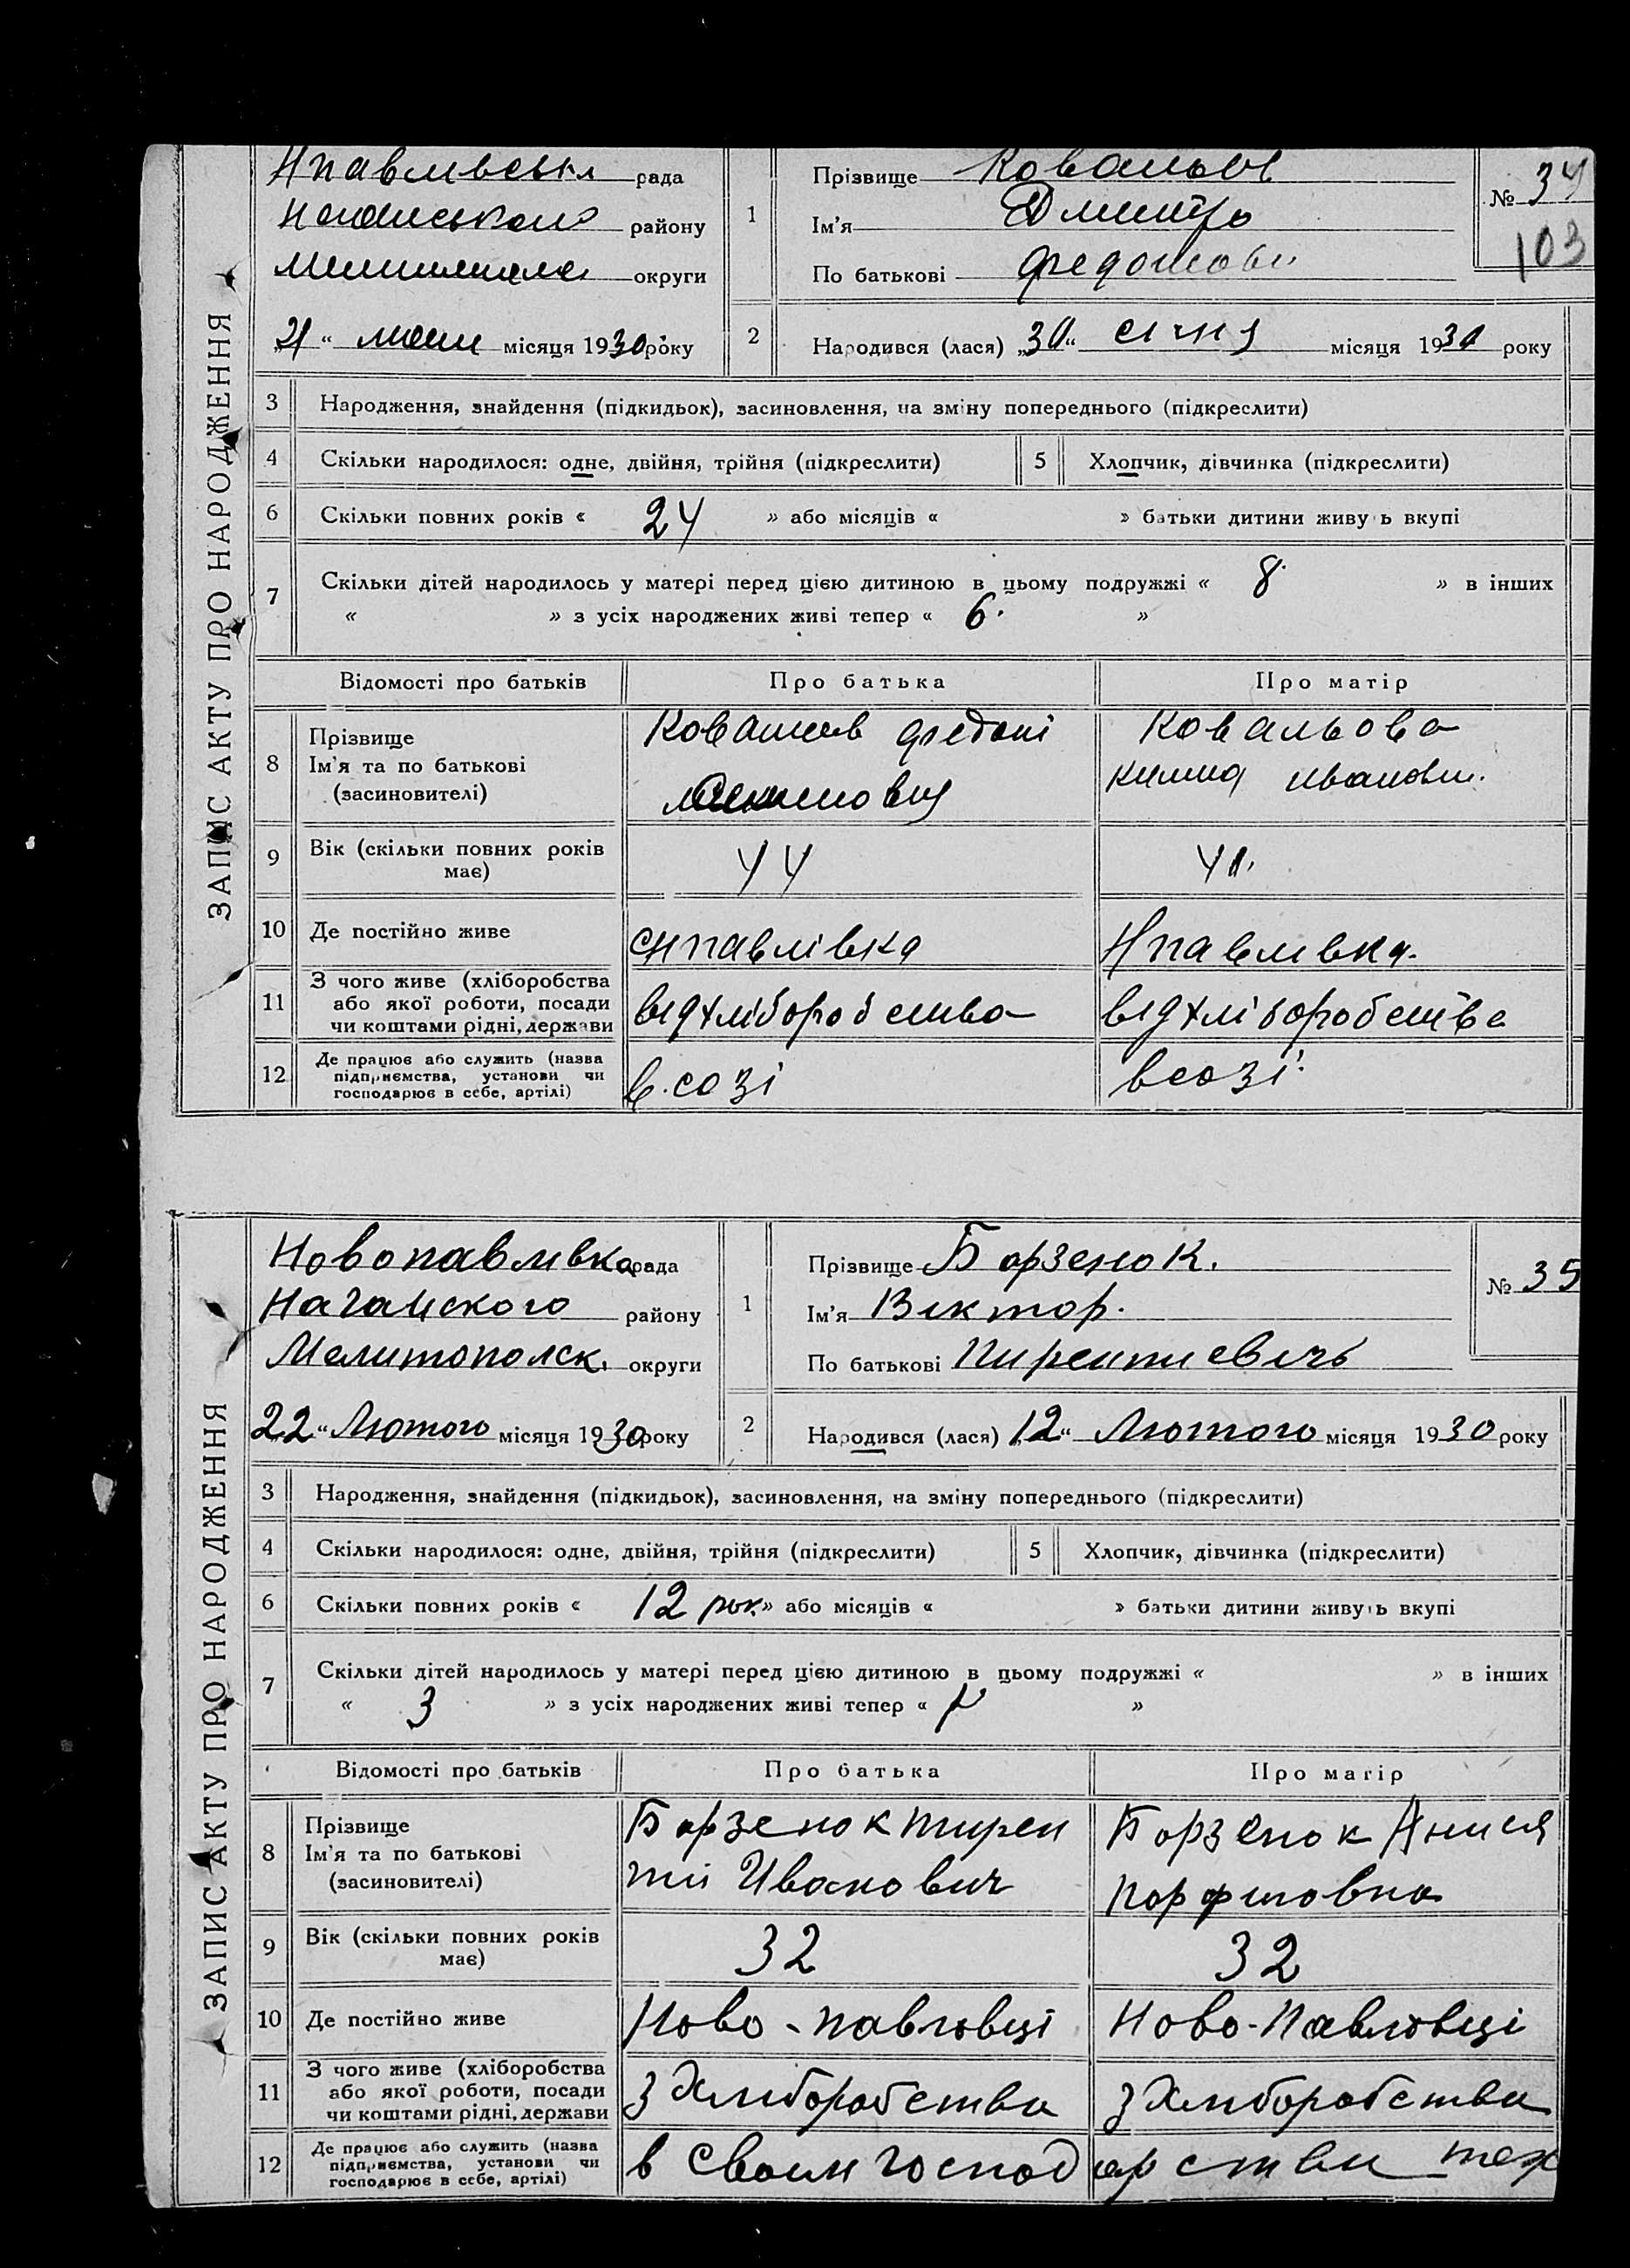 ЗАПИС АКТУ ПРО НАРОДЖЕННЯ
рада
району
округи
" місяця 1930 року
1
Прізвище Ковальов
Ім'я Дмитро
По батькові
№ 34
103
2
Народився (лася) „30" січня місяця 1930 року
3 Народження, знайдення (підкидьок), засиновлення, на зміну попереднього (підкреслити)
4 Скільки народилося: одне, двійня, трійня (підкреслити) 5 Хлопчик, дівчинка (підкреслити)
6 Скільки повних років « 24 » або місяців « » батьки дитини живуть вкупі
7 Скільки дітей народилось у матері перед цією дитиною в цьому подружжі « 8 » в інших
« » з усіх народжених живі тепер « 6 »
Відомості про батьків Про батька Про матір
8 Прізвище
Ім'я та по батькові
(засиновителі)
Ковальова
9 Вік (скільки повних років
має)
44
10 Де постійно живе
Нпавлівка Нпавливка.
11 З чого живе (хліборобства
або якої роботи, посади
чи коштами рідні, держави
від хліборобства від хліборобства
12 Де працює або служить (назва
підприємства, установи чи
господарює в себе, артілі)
в. созі в созі
ЗАПИС АКТУ ПРО НАРОДЖЕННЯ
Новопавливка рада
району
Мелитополск. округи
22 " Лютого місяця 1930 року
1
Прізвище Борзенок.
Ім'я Віктор.
По батькові
№ 35
2
Народився (лася) „12" Лютого місяця 1930 року
3 Народження, знайдення (підкидьок), засиновлення, на зміну попереднього (підкреслити)
4 Скільки народилося: одне, двійня, трійня (підкреслити) 5 Хлопчик, дівчинка (підкреслити)
6 Скільки повних років « 12 рок » або місяців « » батьки дитини живуть вкупі
7 Скільки дітей народилось у матері перед цією дитиною в цьому подружжі « » в інших
« 3 » з усіх народжених живі тепер « »
Відомості про батьків Про батька Про матір
8 Прізвище
Ім'я та по батькові
(засиновителі)
Борзенок Иванович
Борзенок Анися
9 Вік (скільки повних років
має)
32 32
10 Де постійно живе
Ново-павловці Ново-Павловці
11 З чого живе (хліборобства
або якої роботи, посади
чи коштами рідні, держави
з Хлиборобства з Хлиборобства
12 Де працює або служить (назва
підприємства, установи чи
господарює в себе, артілі)
в своим господарстви теж